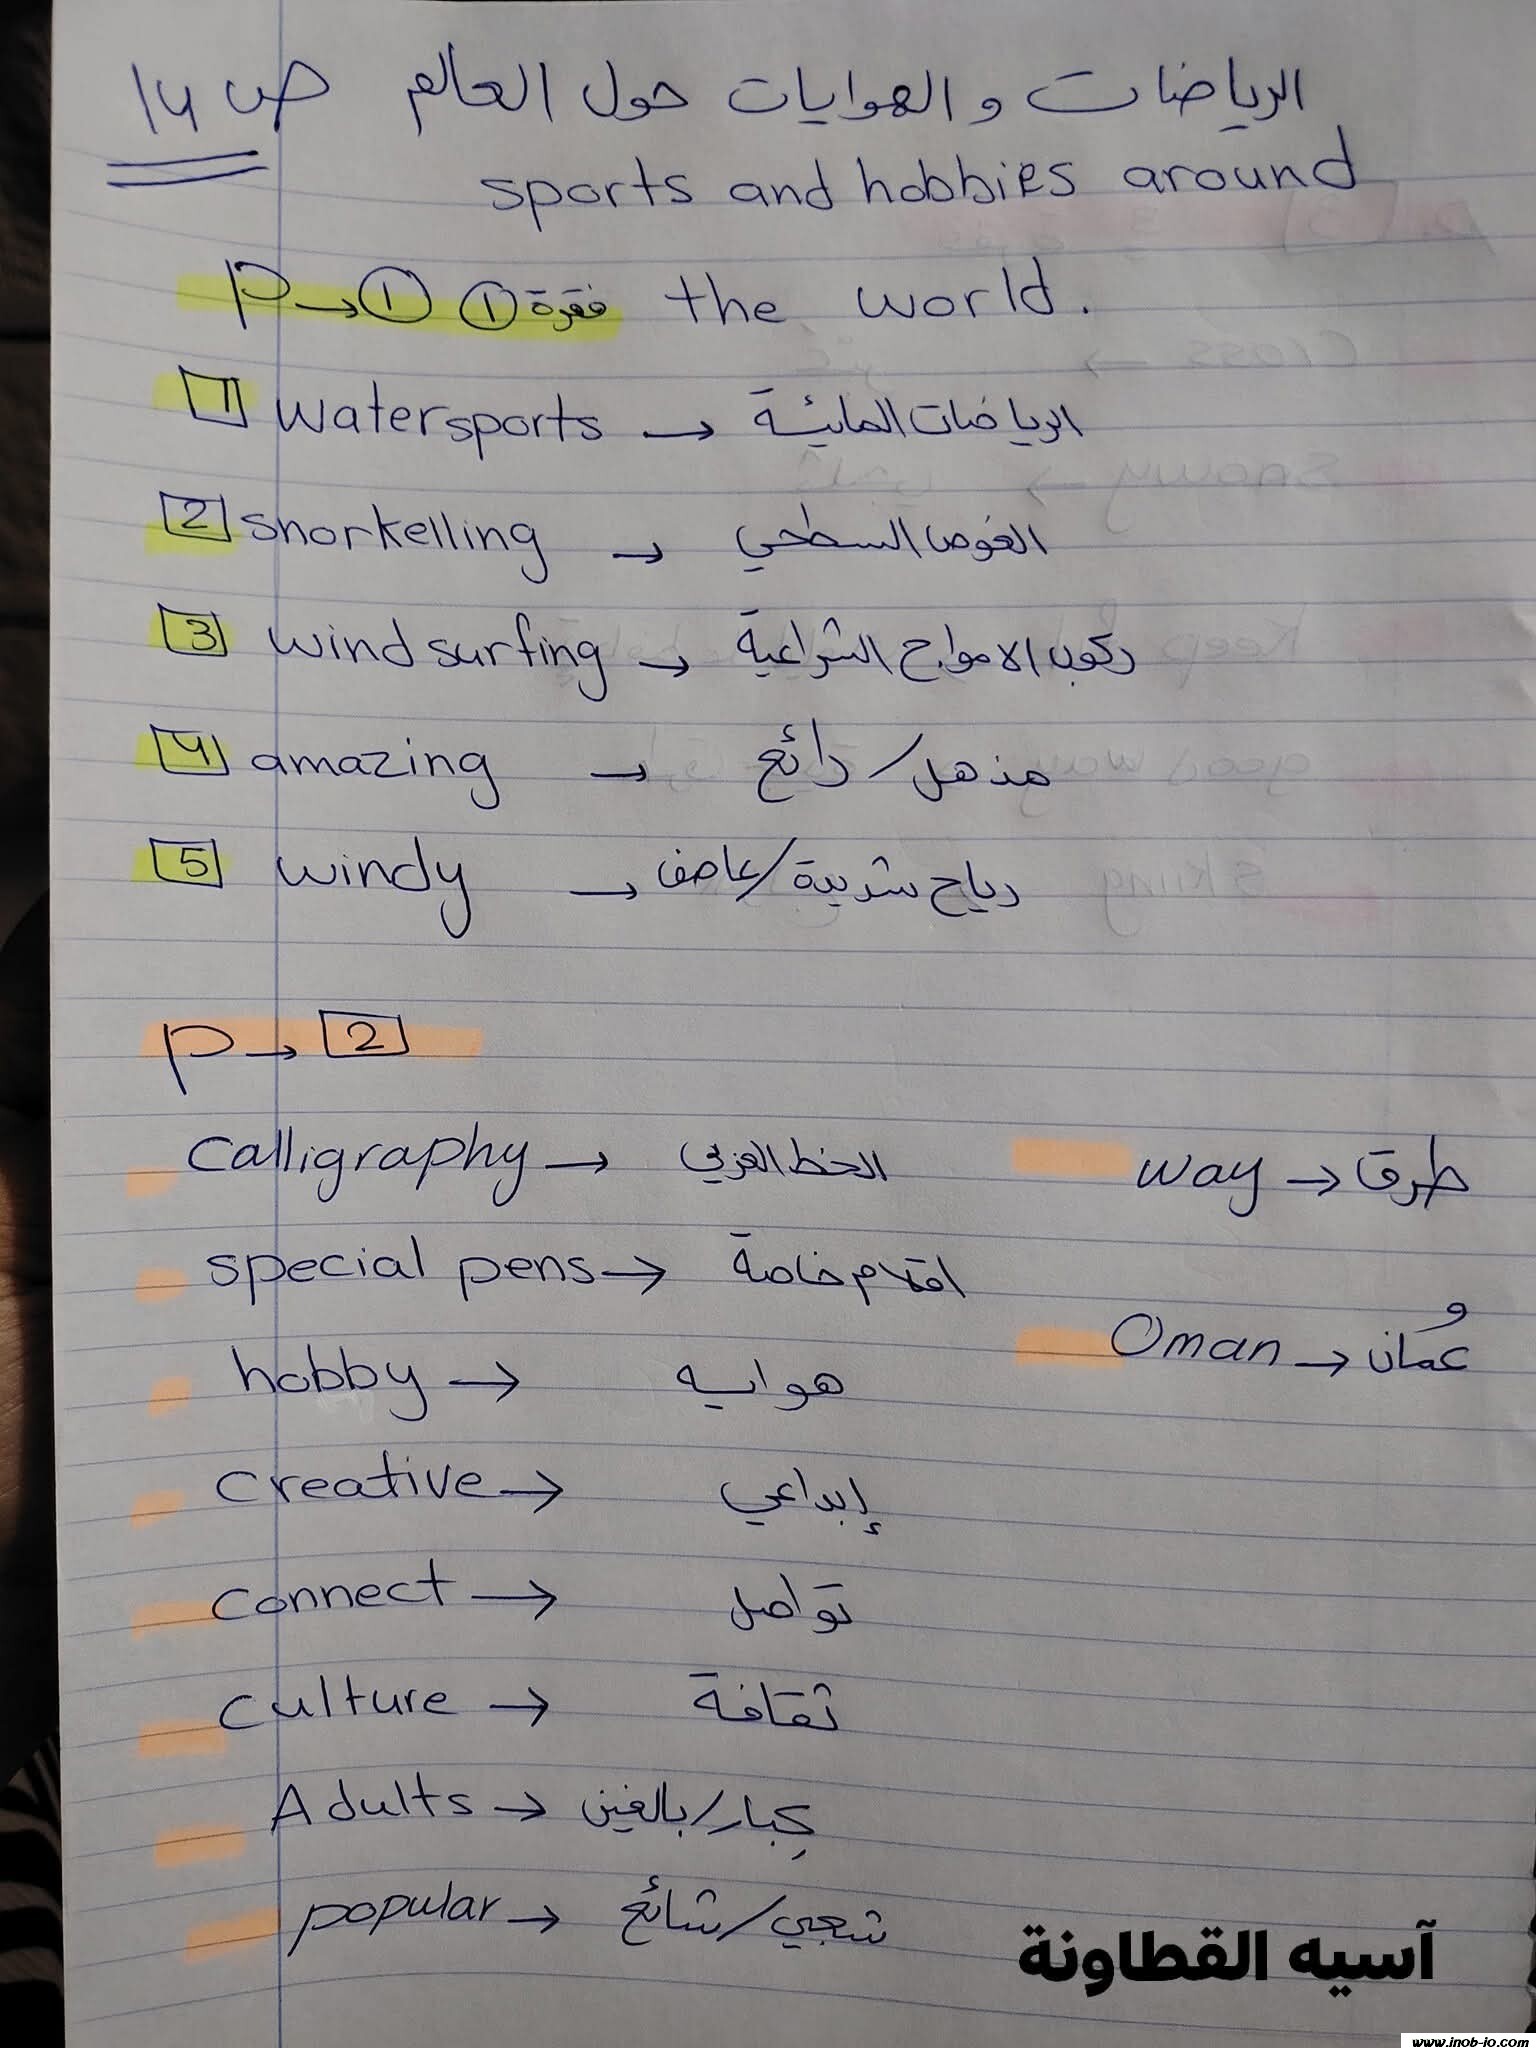 الرياضات و الهوايات حول العالم ص 14
sports and hobbies around
P → 1 فقرة 1 the world.
1 watersports → الرياضات المائية
2 snorkelling → الغوص السطحي
3 wind surfing → ركوب الامواج الشراعية
4 amazing → مذهل / رائع
5 windy → رياح شديدة / عاصف
P → 2
Calligraphy → الخط العربي
way → طرق
special pens → اقلام خاصة
Oman → عُمان
hobby → هوايه
Creative → إبداعي
Connect → تواصل
Culture → ثقافة
Adults → كِبار / بالغين
popular → شعبي / شائع
آسيه القطاونة
www.inob-jo.com